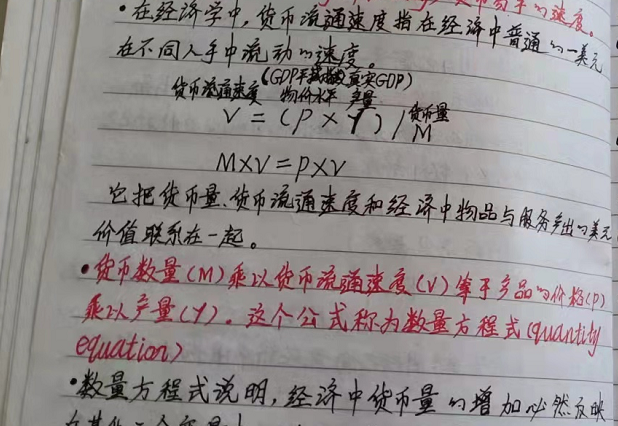 的速度。
•在经济学中,货币流通速度指在经济中普通的一美元
在不同人手中流动的速度。
(GDP平减指数 真实GDP)
货币流通速度 物价水平 产量 货币量
V = (P × Y) / M
M×V=P×V
它把货币量、货币流通速度和经济中物品与服务产出的美元
价值联系在一起。
•货币数量(M)乘以货币流通速度(V)等于产品的价格(P)
乘以产量(Y)。这个公式称为数量方程式(quantity
equation)
•数量方程式说明,经济中货币量的增加必然反映